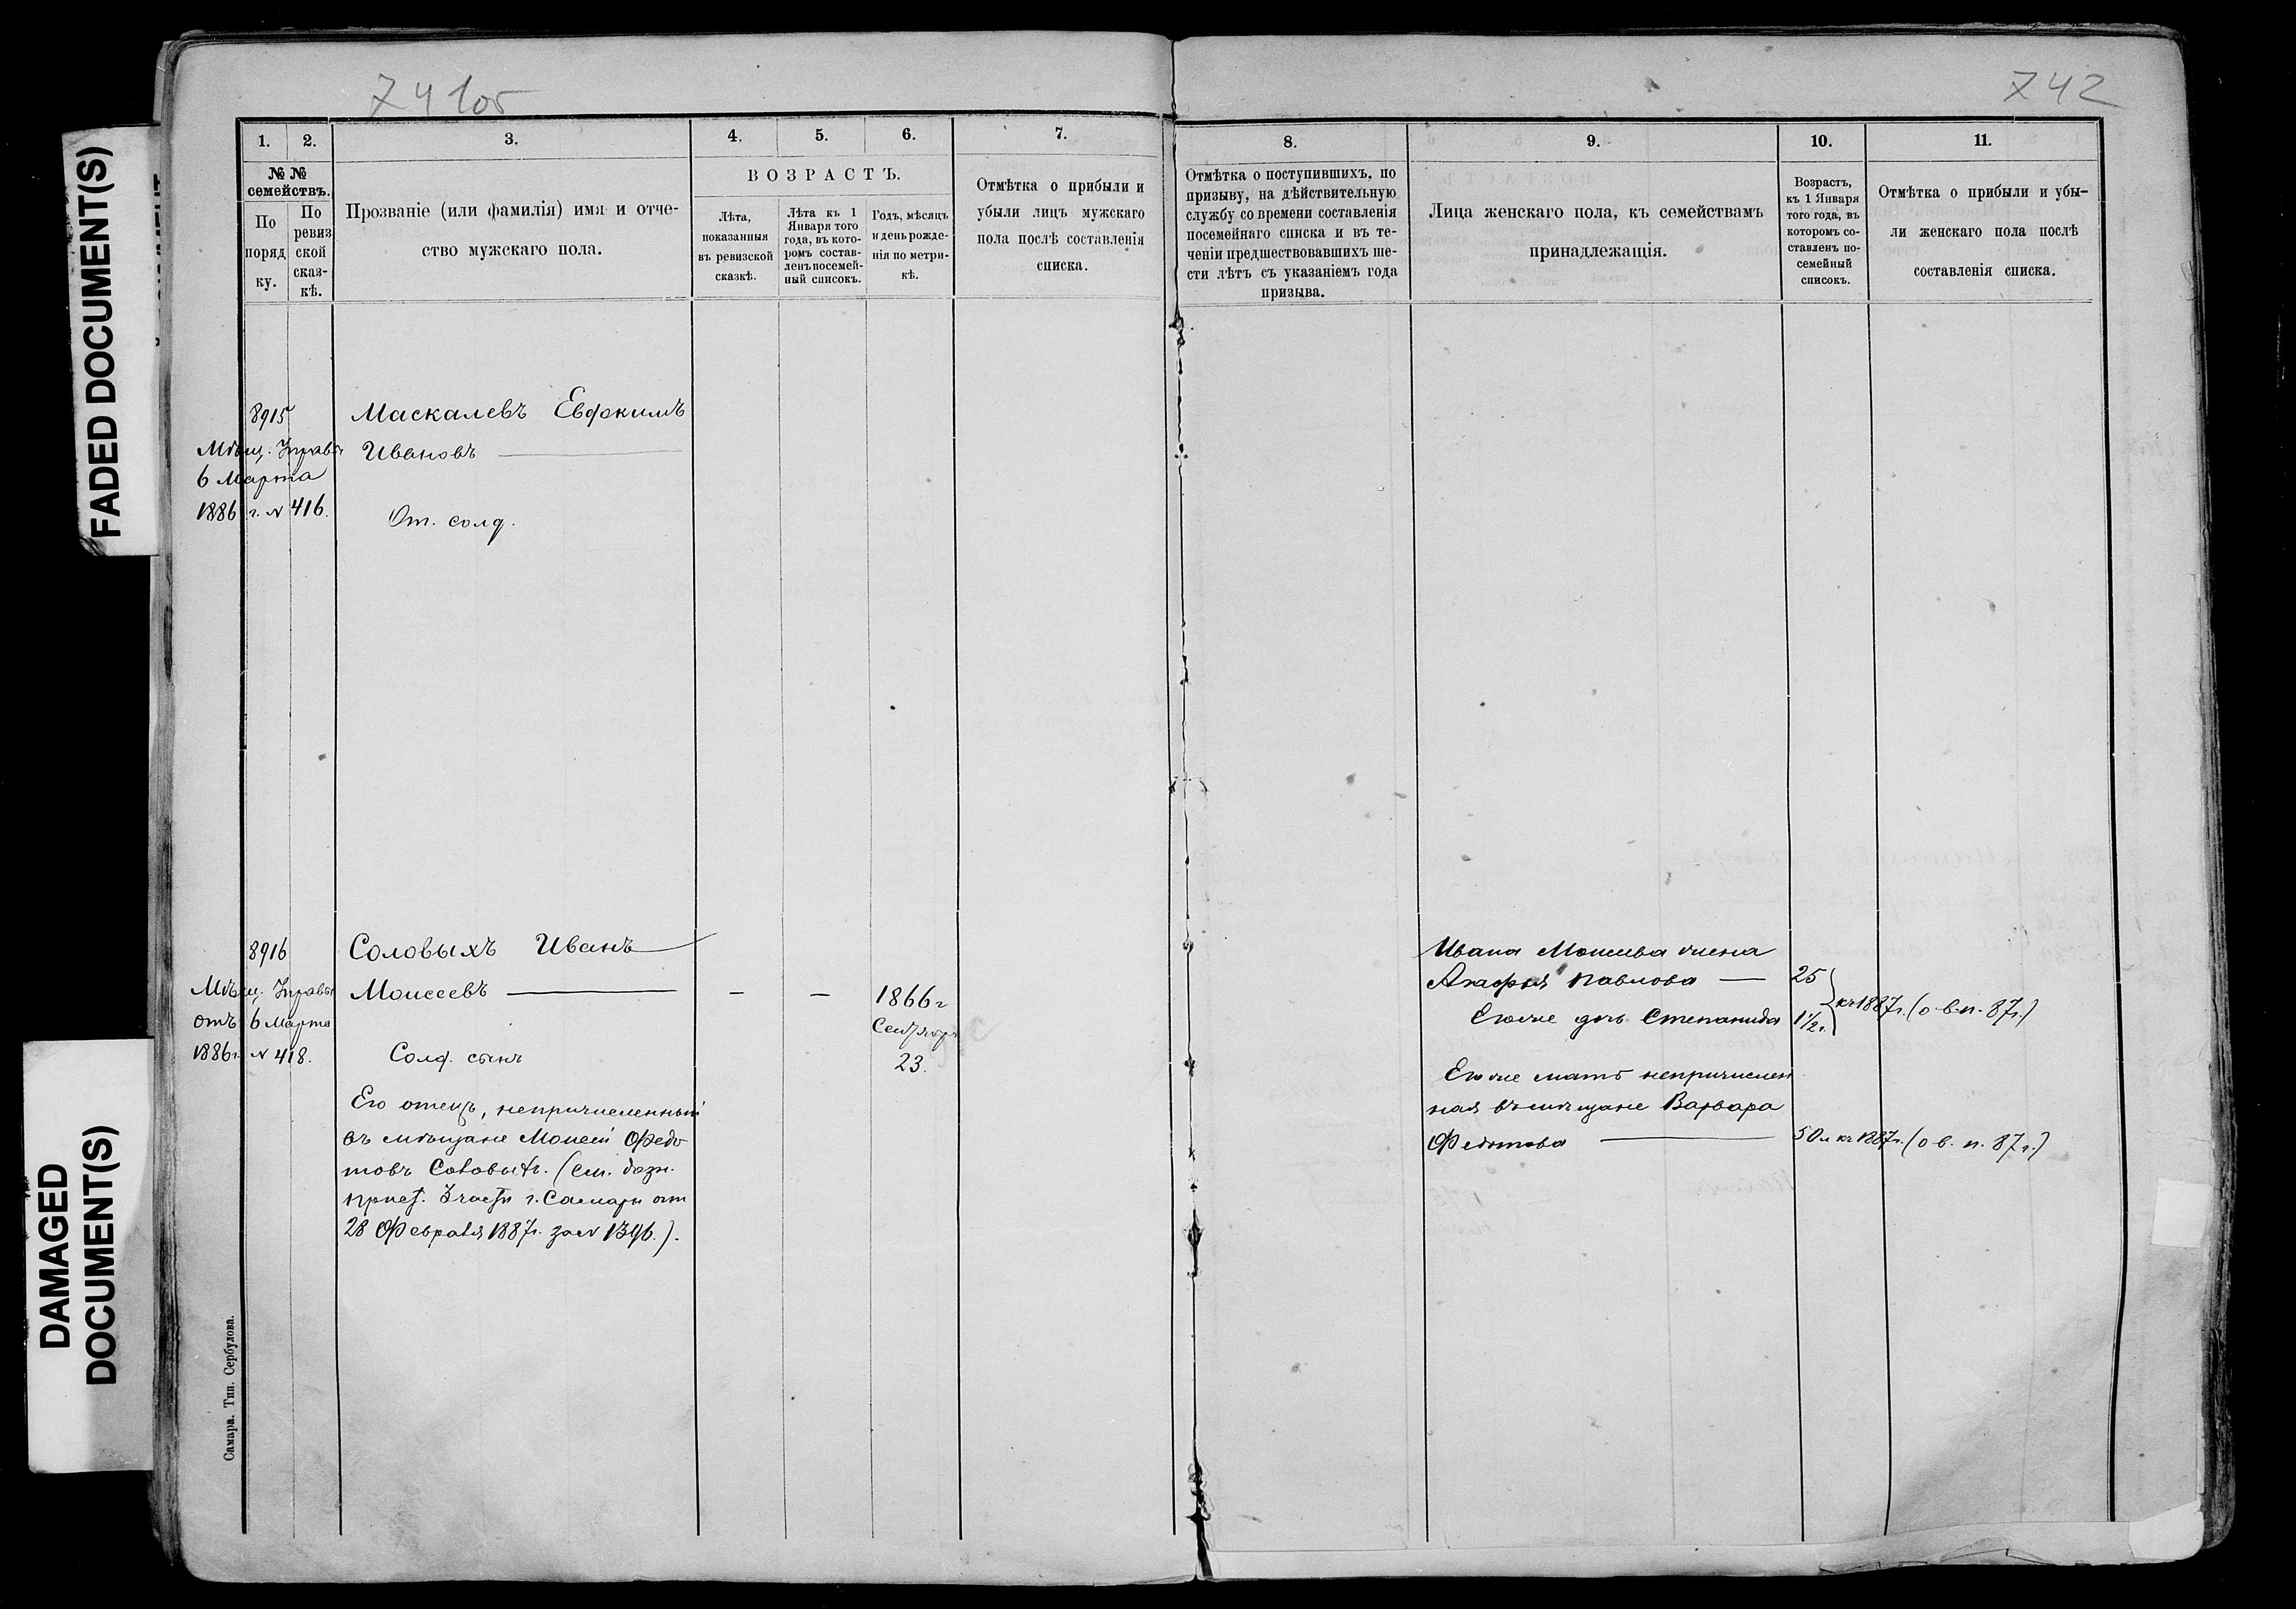 741об
742
FADED DOCUMENT(S)
DAMAGED
DOCUMENT(S)
1.
2.
3.
4.
5.
6.
7.
8.
9.
10.
11.
№ №
семействъ.
По
поряд
ку.
По
ревиз
ской
сказ-
кѣ.
Прозваніе (или фамилія) имя и отче-
ство мужскаго пола.
ВОЗРАСТЪ.
Лѣта,
показанныя
въ ревизской
сказкѣ.
Лѣта къ 1
Января того
года, въ кото-
ромъ состав-
ленъ посемей-
ный списокъ.
Годъ, мѣсяцъ
и день рожде-
нія по метри-
кѣ.
Отмѣтка о прибыли и
убыли лицъ мужскаго
пола послѣ составленія
списка.
Отмѣтка о поступившихъ, по
призыву, на дѣйствительную
службу со времени составленія
посемейнаго списка и въ те-
ченіи предшествовавшихъ ше-
сти лѣтъ съ указаніемъ года
призыва.
Лица женскаго пола, къ семействамъ
принадлежащія.
Возрастъ,
къ 1 Января
того года, въ
которомъ со-
ставленъ по-
семейный
списокъ.
Отмѣтка о прибыли и убы-
ли женскаго пола послѣ
составленія списка.
8915
Мѣщ. Управы
6 Марта
1886 г. № 416.
Маскалевъ Евфкимъ
Ивановъ
От. солд.
8916
Мѣщ. Управы
отъ 6 Марта
1886 г. № 418.
Соловыхъ Иванъ
Моисеевъ
Солд. сынъ
Его отецъ, непричисленный
въ мѣщане Моисей Федо
товъ Соловыхъ. (см. дозн.
прист. 3 части г. Самары от
28 Февраля 1887 г. за № 1396.).
— — 1866 г
Сентября
23.
Ивана Моисеева жена
Агафья Павлова — 25
Егоже дочь Степанида 1½ г.
къ 1887 г. (о в. п. 87 г.)
Егоже мать непричислен
ная въ мѣщане Варвара
Федотова — 50 л къ 1887 г. (о в. п. 87 г.)
Самара. Тип. Сербулова.